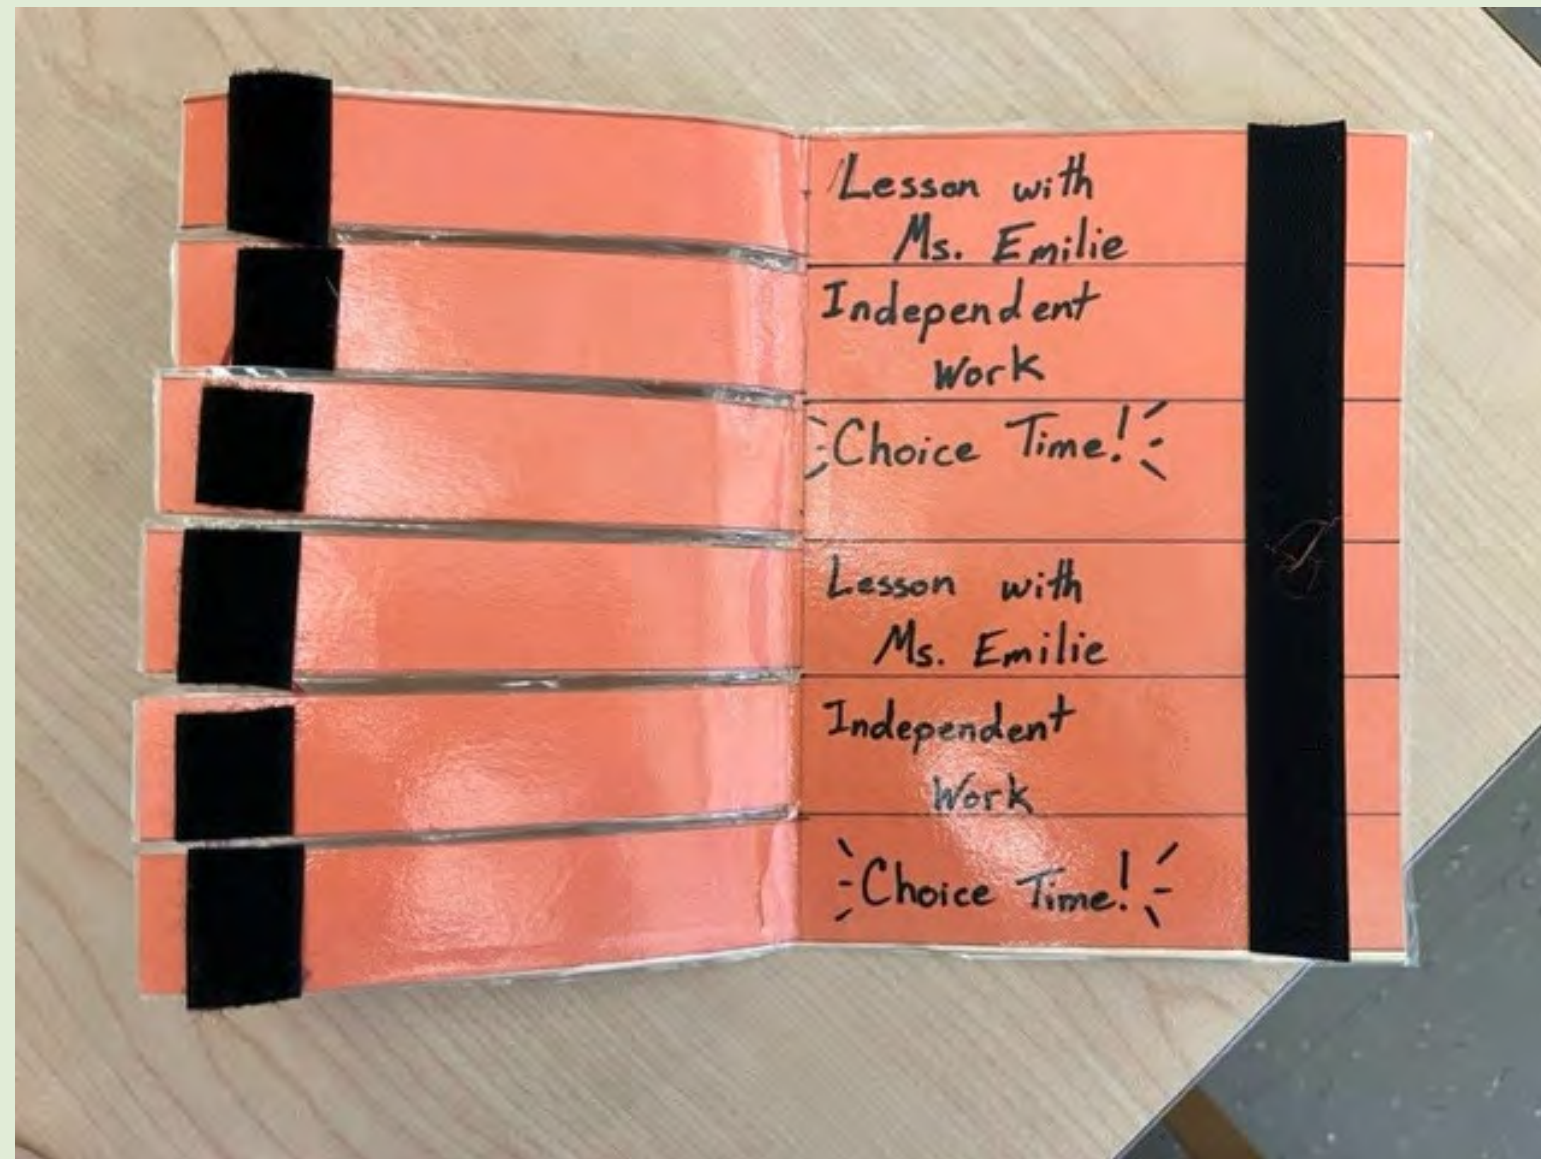 Lesson with
Ms. Emilie
Independent
Work
Choice Time!
Lesson with
Ms. Emilie
Independent
Work
Choice Time!